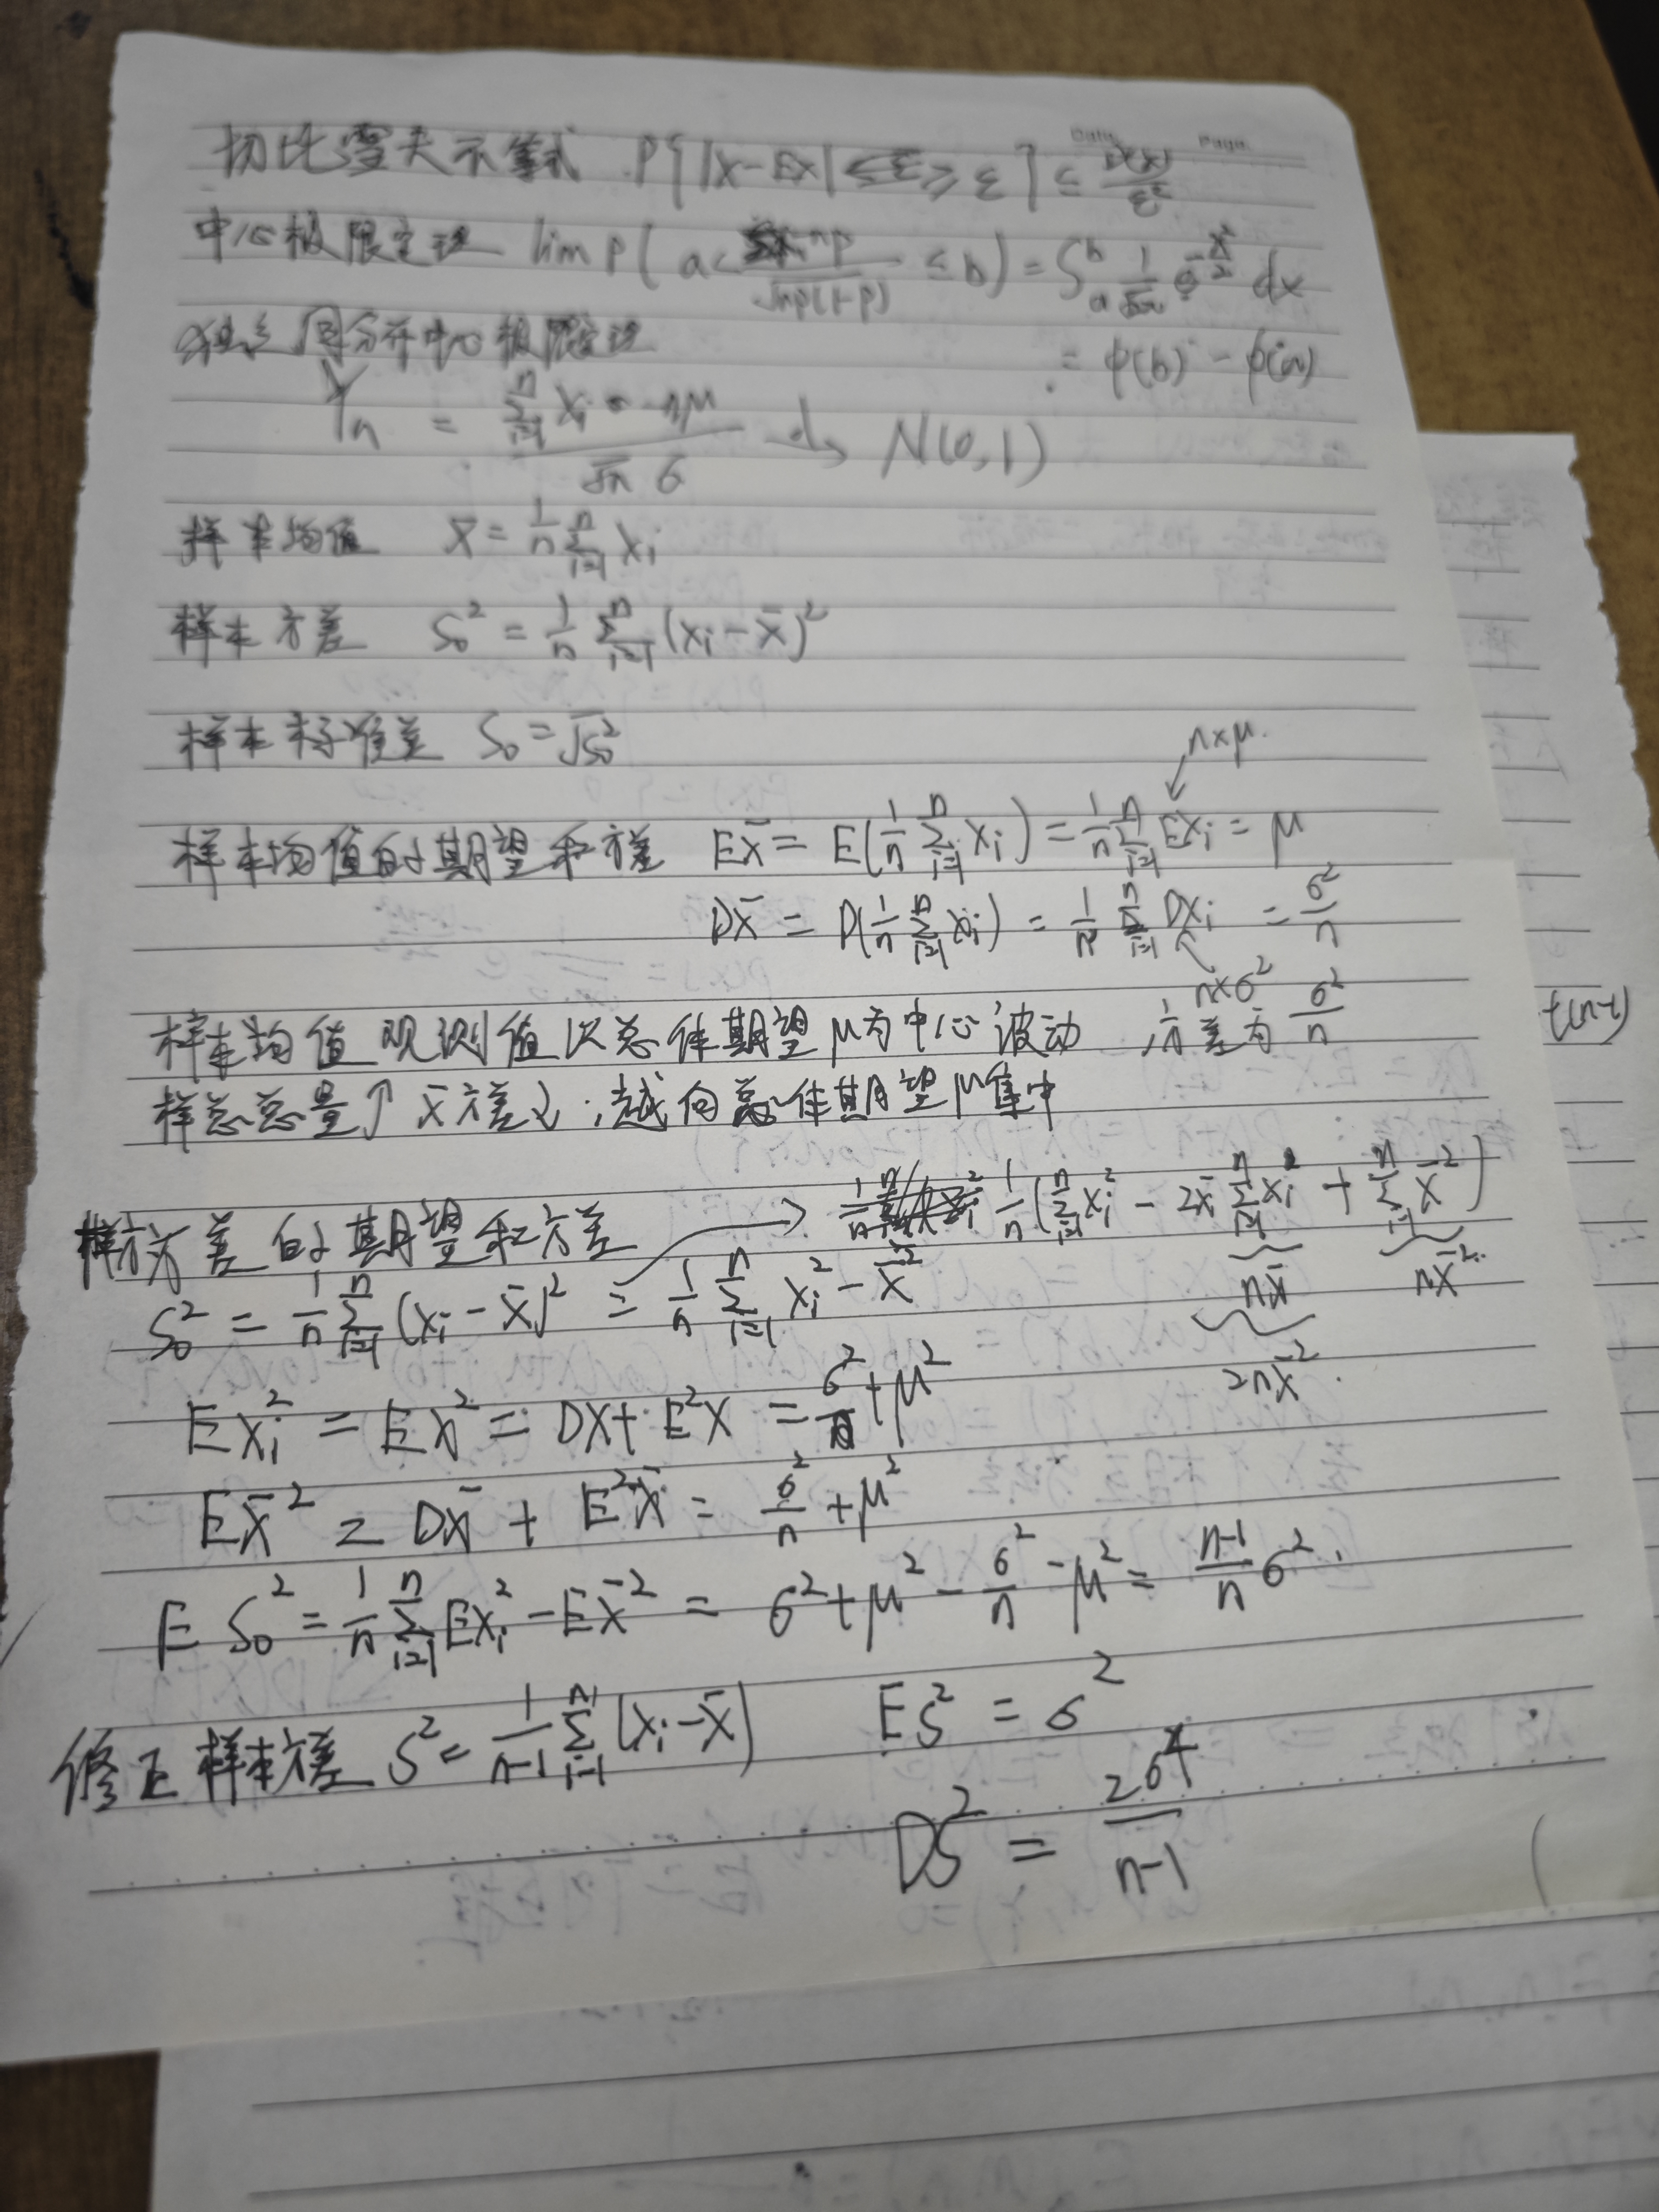 Date. Page.
切比雪夫不等式 P{|X-EX| ≥ ε} ≤ D(X)/ε²
中心极限定理 lim P( a < -np/√np(1-p) ≤ b) = ∫ₐᵇ 1/√2π e^(-x²/2) dx
= φ(b) - φ(a)
独立同分布中心极限定理
Yn = (Σᵢ₌₁ⁿ Xi - nμ)/(√n σ) →d N(0,1)
样本均值 X̄ = 1/n Σᵢ₌₁ⁿ Xi
样本方差 S₀² = 1/n Σᵢ₌₁ⁿ (Xi - X̄)²
样本标准差 S₀ = √S₀²
n×μ.
样本均值的期望和方差 EX̄ = E(1/n Σᵢ₌₁ⁿ Xi) = 1/n Σᵢ₌₁ⁿ EXi = μ
DX̄ = D(1/n Σᵢ₌₁ⁿ Xi) = 1/n² Σᵢ₌₁ⁿ DXi = σ²/n
n×σ²
样本均值观测值以总体期望μ为中心波动 方差为 σ²/n
样总总量↑ X̄方差↓,越向总体期望μ集中
样方差的期望和方差 → 1/n (Σᵢ₌₁ⁿ Xi² - 2X̄ Σᵢ₌₁ⁿ Xi + Σᵢ₌₁ⁿ X̄²)
nX̄ nX̄²
S₀² = 1/n Σᵢ₌₁ⁿ (Xi - X̄)² = 1/n Σᵢ₌₁ⁿ Xi² - X̄²
2nX̄²
EXi² = EX² = DX + E²X = σ² + μ²
EX̄² = DX̄ + E²X̄ = σ²/n + μ²
E S₀² = 1/n Σᵢ₌₁ⁿ EXi² - EX̄² = σ² + μ² - σ²/n - μ² = (n-1)/n σ².
修正样本方差 S² = 1/(n-1) Σᵢ₌₁ⁿ (Xi - X̄) ES² = σ²
DS² = 2σ⁴/(n-1)
t(n-1)